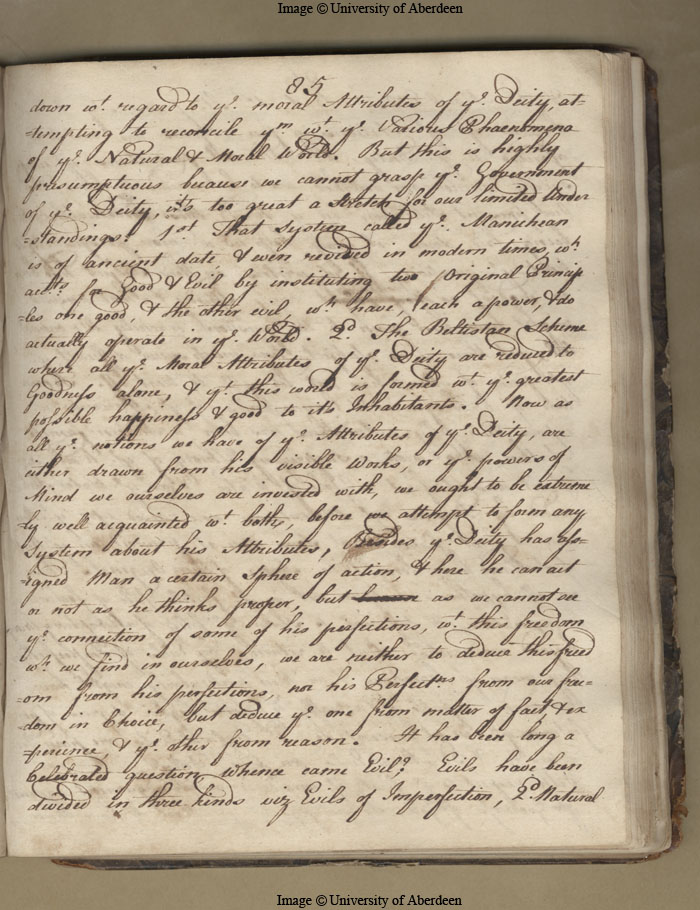 Image © University of Aberdeen
85
down wt. regard to ye. moral Attributes of ye. Deity, at-
-tempting to reconcile ym wt. ye. Various Phaenomena
of ye. Natural & Moral World. But this is highly
presumptuous because we cannot grasp ye. Government
of ye. Deity, it's too great a Stretch for our limited Under
-standings. 1st That System called ye. Manichean
is of ancient date & even revived in modern times, wh.
accts. for Good & Evil by instituting two Original Princip
-les one good, & the other evil, wh. have, each a power, & do
actually operate in ye. World. 2d. The Beltistan Scheme
where all ye. Moral Attributes of ye. Deity are reduced to
Goodness alone, & yt. this world is formed wt. ye. greatest
possible happiness & good to it's Inhabitants. Now as
all ye. notions we have of ye. Attributes of ye. Deity, are
either drawn from his visible Works, or ye. powers of
Mind we ourselves are invested with, we ought to be extreme
-ly well acquainted wt. both, before we attempt to form any
System about his Attributes, Besides ye. Deity has ass-
-igned Man a certain Sphere of action, & here he can act
or not as he thinks proper, but as we cannot see
ye. connection of some of his perfections, wt. this freedom
wh. we find in ourselves, we are neither to deduce this freed
-om from his perfections, nor his Perfectns from our free-
-dom in Choice, but deduce ye. one from matter of fact & ex
-perience, & ye. other from reason. It has been long a
Celebrated question whence came Evil? Evils have been
divided in three kinds viz Evils of Imperfection, 2d. Natural
Image © University of Aberdeen